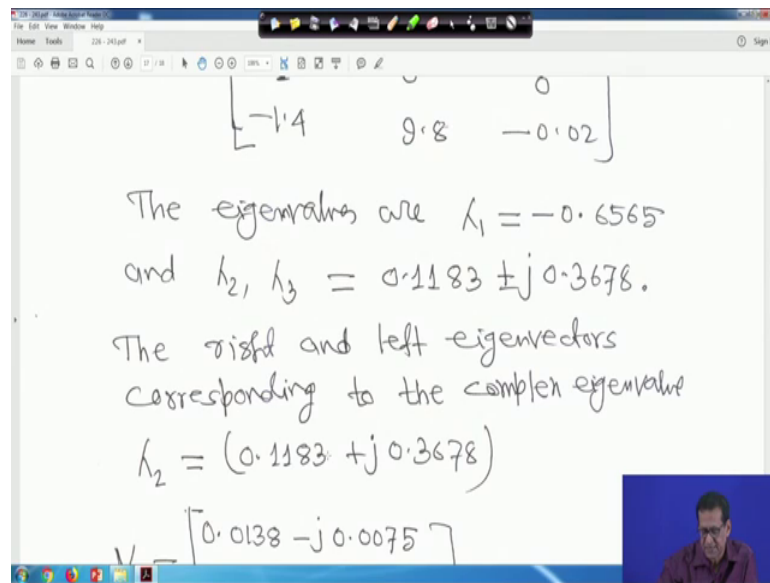 226 - 243.pdf - Adobe Acrobat Reader DC
File Edit View Window Help
Home Tools 226 - 243.pdf × Sign
17 / 18
0
-1.4 9.8 -0.02
The eigenvalues are λ₁ = -0.6565
and λ₂, λ₃ = 0.1183 ± j 0.3678.
The right and left eigenvectors
corresponding to the complex eigenvalue
λ₂ = (0.1183 + j 0.3678)
0.0138 - j 0.0075